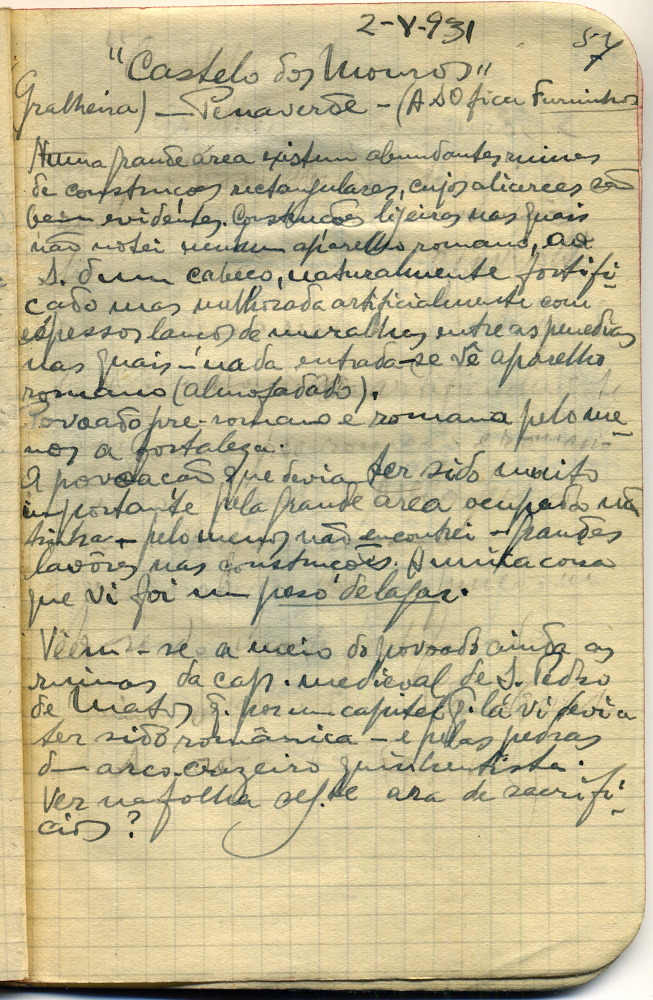 2-V-931
57
"Castelo dos Mouros"
Gralheira) — Penaverde - (A SO fica Forninhos
Numa grande área existem abundantes ruinas
de construcoes rectangulares, cujos alicerces são
bem evidentes. Construcões ligeiras nas quais
não notei nenhum aparelho romano, ao
S. dum cabeco, naturalmente fortifi-
cado mas melhorada artificialmente com
espessos lancos de muralhas entre as penedias
nas quais – na da entrada – se vê aparelho
romano (almofadado).
Povoado pre-romano e romano pelo me-
nos a fortaleza.
A povoacão que devia ter sido muito
importante pela grande área ocupada não
tinha – pelo menos não encontrei – grandes
lavôres nas construcoes. A unica cousa
que vi foi um peso de lagar.
Vêem-se a meio do povoado ainda as
ruinas da cap. medieval de S. Pedro
de Matos q. por um capitel q. lá vi devia
ter sido românica – e pelas pedras
d— arco cruzeiro quinhentista.
Ver na folha seg.te ara de sacrifi-
cios?